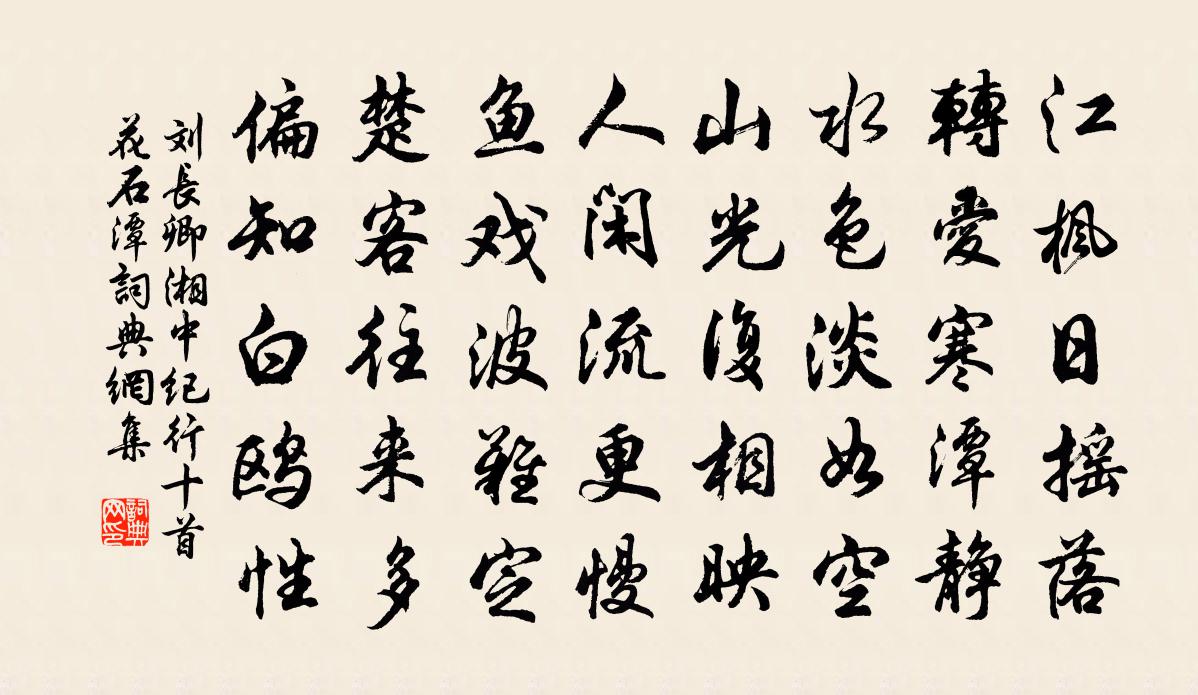 江楓日摇落
轉愛寒潭静
水色淡如空
山光復相映
人閑流更慢
鱼戏波難定
楚客往来多
偏知白鸥性
刘長卿湘中纪行十首
花石潭詞典網集
詞典
网印